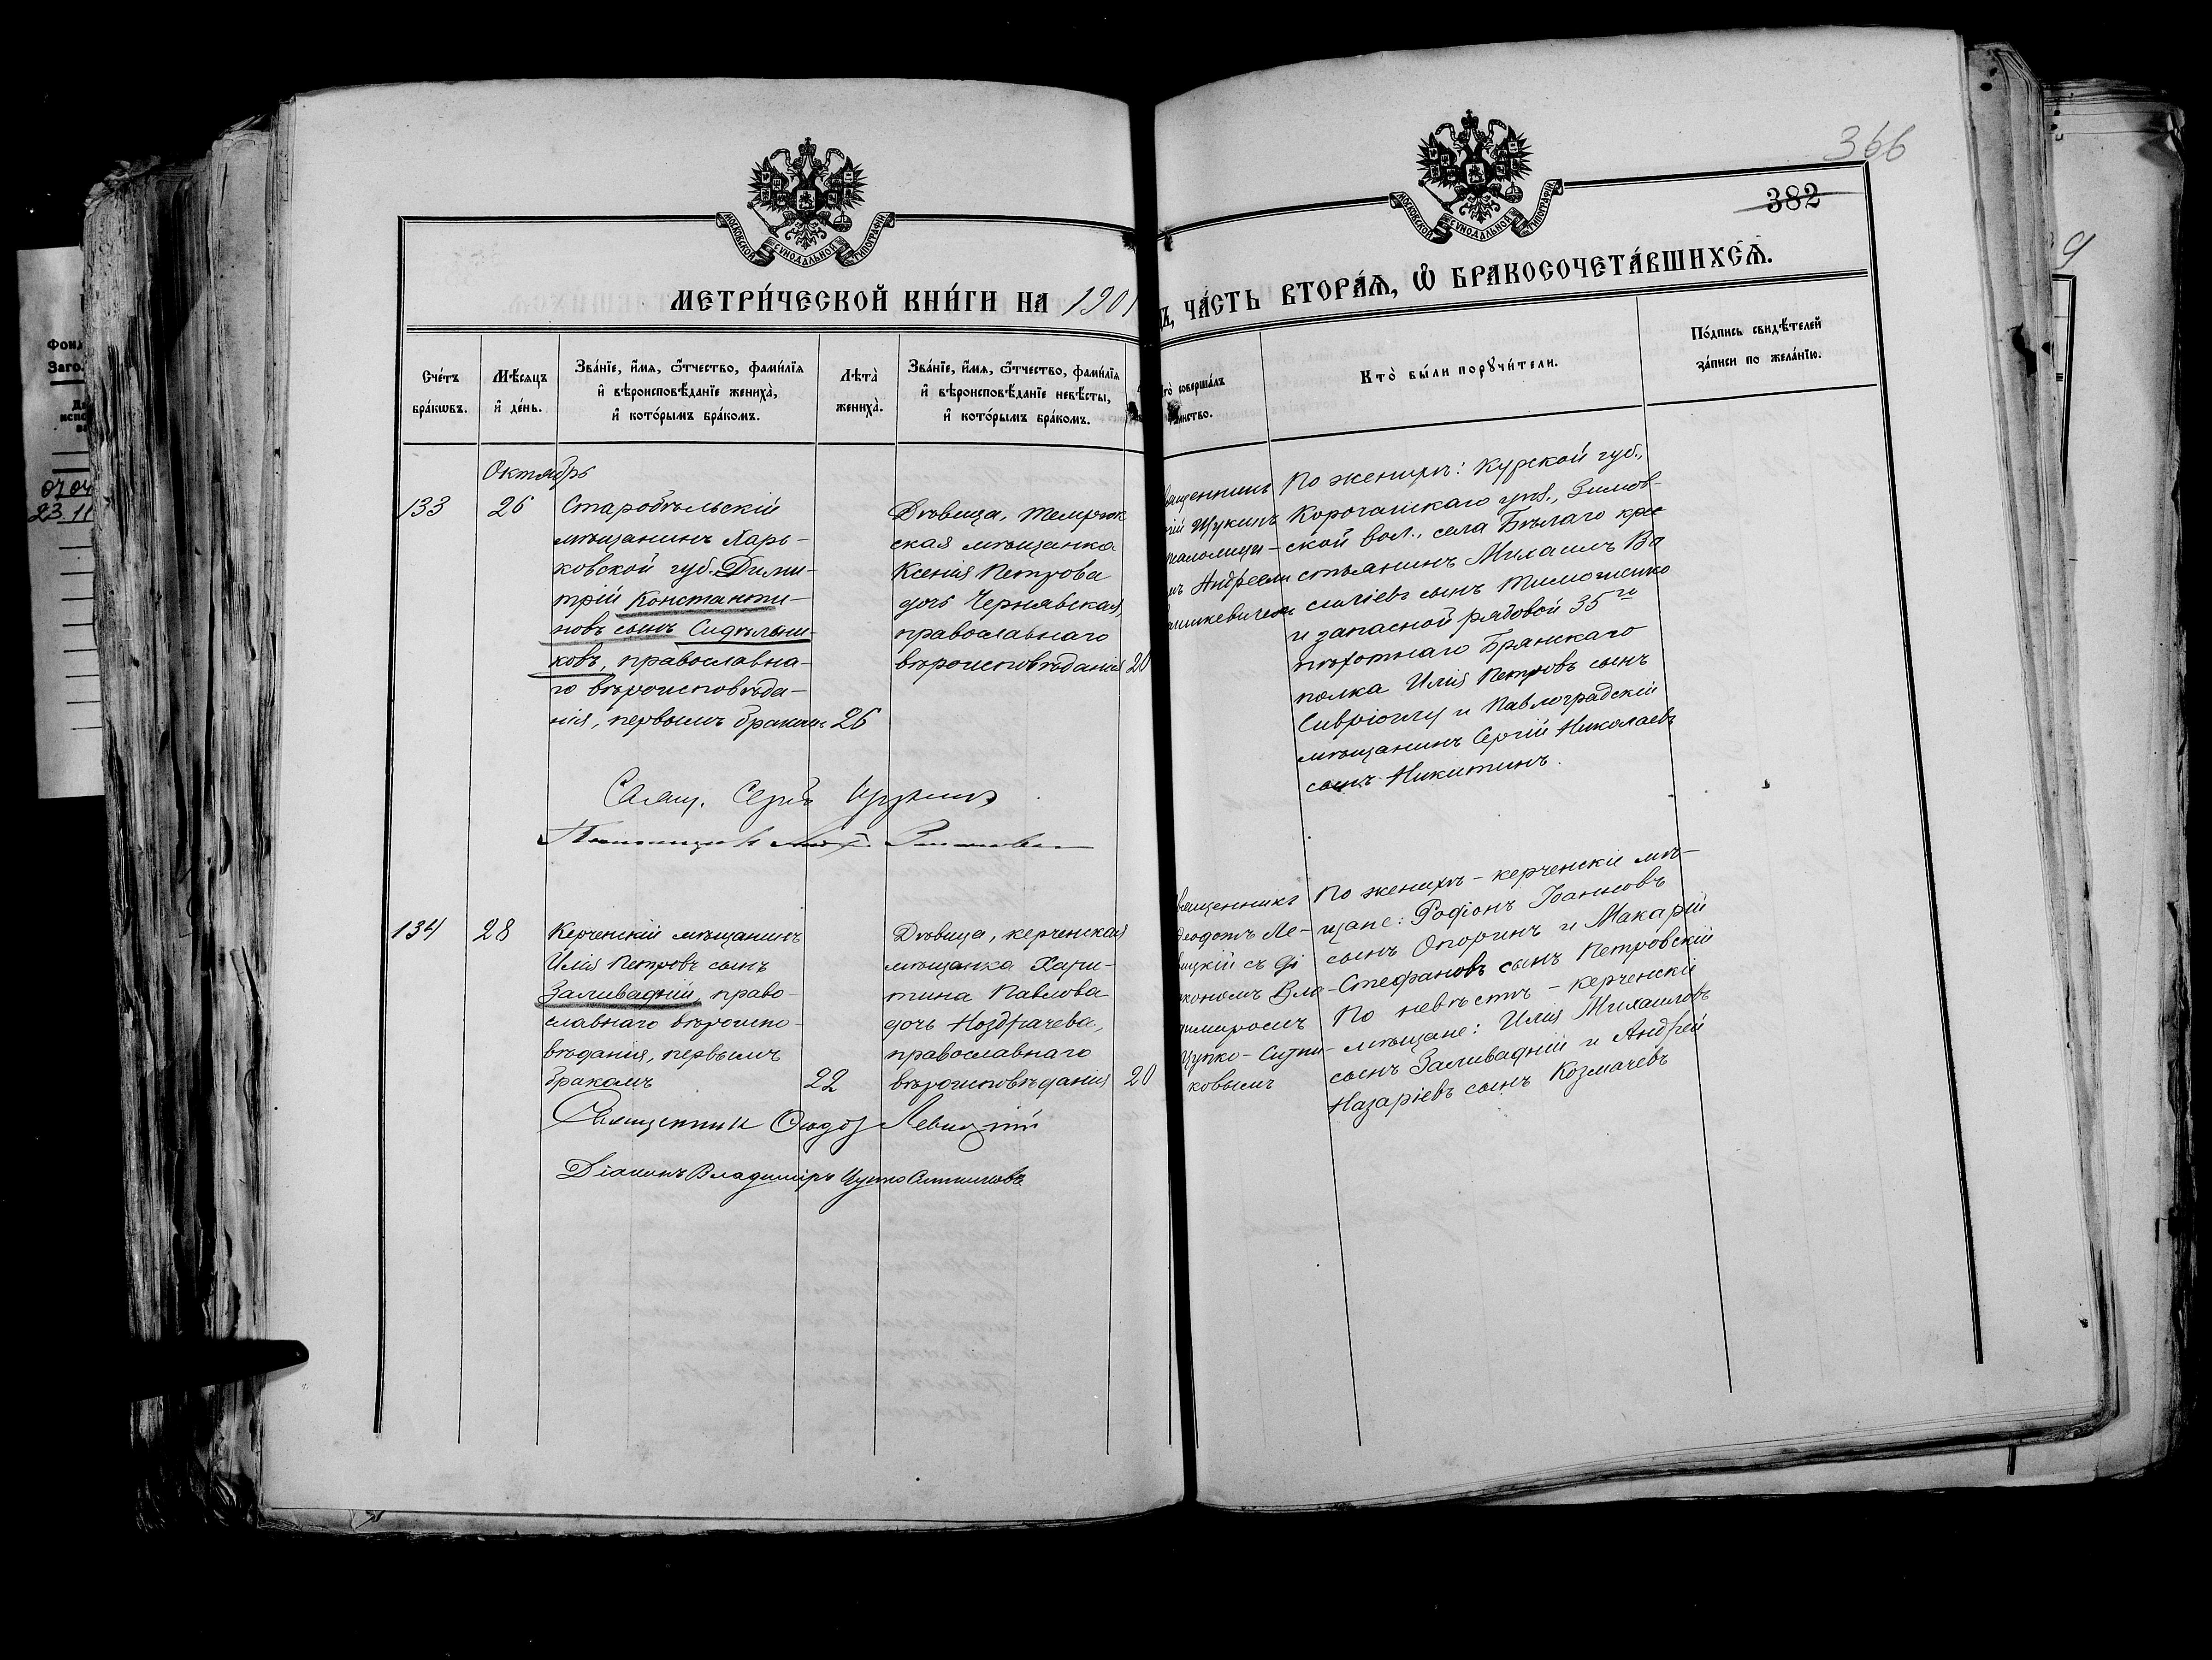 366
382
МОСКОВСКОЙ СУНОДАЛЬНОЙ ТИПОГРАФІИ
МОСКОВСКОЙ СУНОДАЛЬНОЙ ТИПОГРАФІИ
МЕТРИ́ЧЕСКОЙ КНИ́ГИ НА 1901
Ъ, ЧА́СТЬ ВТОРА́Ѧ, Ѡ҆ БРАКОСОЧЕТА́ВШИХСѦ.
Сче́тъ бра́кѡвъ.
Мѣ́сяцъ и҆ де́нь.
Зва́нїе, и҆́мя, ѻ҆́тчество, фами́лїя
и҆ вѣроисповѣ́данїе жениха̀,
и҆ кото́рымъ бра́комъ.
Лѣта̀ жениха̀.
Зва́нїе, и҆́мя, ѻ҆́тчество, фами́лїя
и҆ вѣроисповѣ́данїе невѣ́сты,
и҆ кото́рымъ бра́комъ.
то̀ соверша́лъ
таинство.
Кто̀ бы́ли порꙋчи́тели.
По́дпись свидѣ́телей
за́писи по жела́нїю.
Октябрь
133
26
Старобѣльскій
мѣщанинъ Харь-
ковской губ. Дими-
трій Константи-
новъ сынъ Сидѣльни-
ковъ, православна-
го вѣроисповѣда-
нія, первымъ бракомъ 26
Дѣвица, темрюк
ская мѣщанка
Ксенія Петрова
дочь Чернявская,
православнаго
вѣроисповѣданія 20
вященникъ
гій Щукинъ
псаломщи-
мъ Андреем
По женихѣ: Курской губ.,
Корочанскаго уѣз., Зимов-
ской вол., села Бѣлаго крес
стьянинъ Михаилъ Ва
силіевъ сынъ Тимошенко
и запасной рядовой 35го
пѣхотнаго Брянскаго
полка Илія Петровъ сынъ
и Павлоградскій
мѣщанинъ Сергій Николаевъ
сынъ Никитинъ.
Свящ. Сергій Щукинъ
134
28
Керченскій мѣщанинъ
Илія Петровъ сынъ
Заливадній, право-
славнаго вѣроиспо-
вѣданія, первымъ
бракомъ 22
Дѣвица, керченская
мѣщанка Хари-
тина Павлова
дочь Ноздрачева,
православнаго
вѣроисповѣданія 20
вященникъ
Ѳеодотъ Ле-
вицкій съ ді
акономъ Вла-
димиромъ
Цупко-Ситни-
ковымъ
По женихѣ - керченскіе мѣ-
щане: Родіонъ Іоанновъ
сынъ Опоринъ и Макарій
Стефановъ сынъ Петровскій
По невѣстѣ - керченскіе
мѣщане: Илія Михаиловъ
сынъ Заливадній и Андрей
Назаріевъ сынъ Козмачевъ
Священникъ Ѳеодот Левицкій
Діаконъ Владиміръ Цупко Ситниковъ
Фонд
Заго
0704
23.11
9